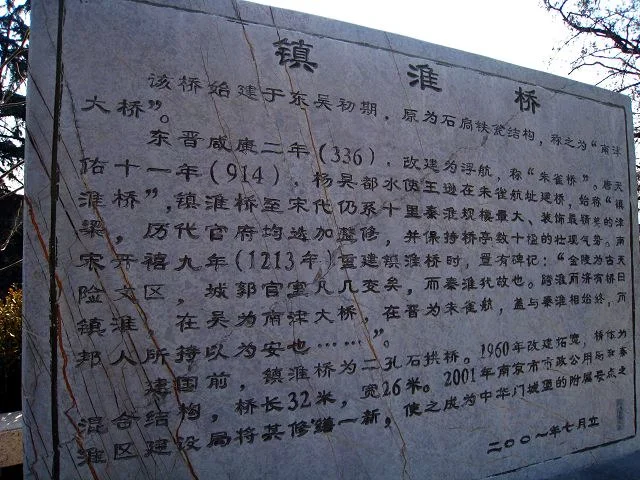 镇淮桥
该桥始建于东吴初期，原为石扃铁瓮结构，称之为“南津
大桥”。
东晋咸康二年（336），改建为浮航，称“朱雀桥”。唐天
佑十一年（914），杨吴都水使王逊在朱雀航址建桥，始称“镇
淮桥”，镇淮桥至宋代仍系十里秦淮规模最大、装饰最精美的津
梁，历代官府均迭加整修，并保持桥亭数十楹的壮观气势。南
宋开禧九年（1213年）重建镇淮桥时，置有碑记：“金陵为古天
险文区，城郭官室凡几变矣，而秦淮犹故也。跨淮而济有桥曰
镇淮 在吴为南津大桥，在晋为朱雀航，盖与秦淮相始终，而
邦人所恃以为安也……”。
建国前，镇淮桥为二孔石拱桥。1960年改建拓宽，桥体为
混合结构，桥长32米，宽26米。2001年南京市市政公用局和秦
淮区建设局将其修缮一新，使之成为中华门城堡的附属景点之
二○○一年七月立